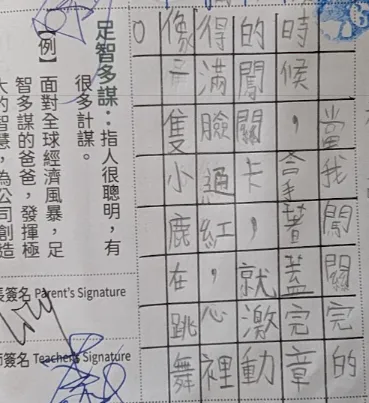 當我闖關完的
時候，拿著蓋完章
的闖關卡，就激動
得滿臉通紅，心裡
像一隻小鹿在跳舞
。
足智多謀：指人很聰明，有
很多計謀。
【例】面對全球經濟風暴，足
智多謀的爸爸，發揮極
大的智慧，為公司創造
長簽名 Parent's Signature
師簽名 Teacher's Signature